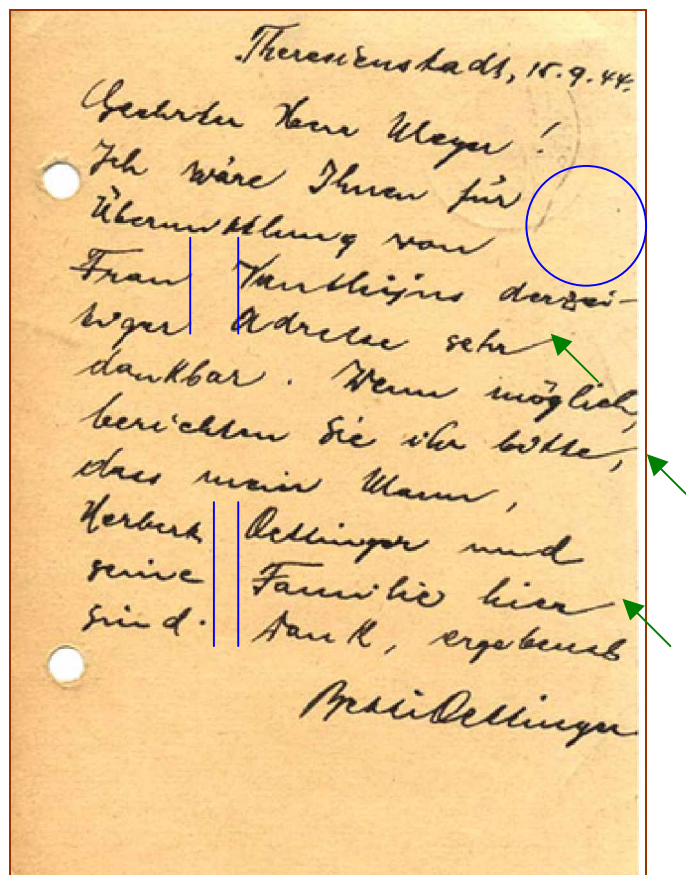 Theresienstadt, 18.9.44.
Geehrter Herr Meyer!
Ich wäre Ihnen für
Übermittlung von
Frau derzei-
tiger Adresse sehr
dankbar. Wenn möglich,
berichten Sie ihr bitte,
dass mein Mann,
Herbert Oettinger und
seine Familie hier
sind. Dank, ergebenst
Betti Oettinger